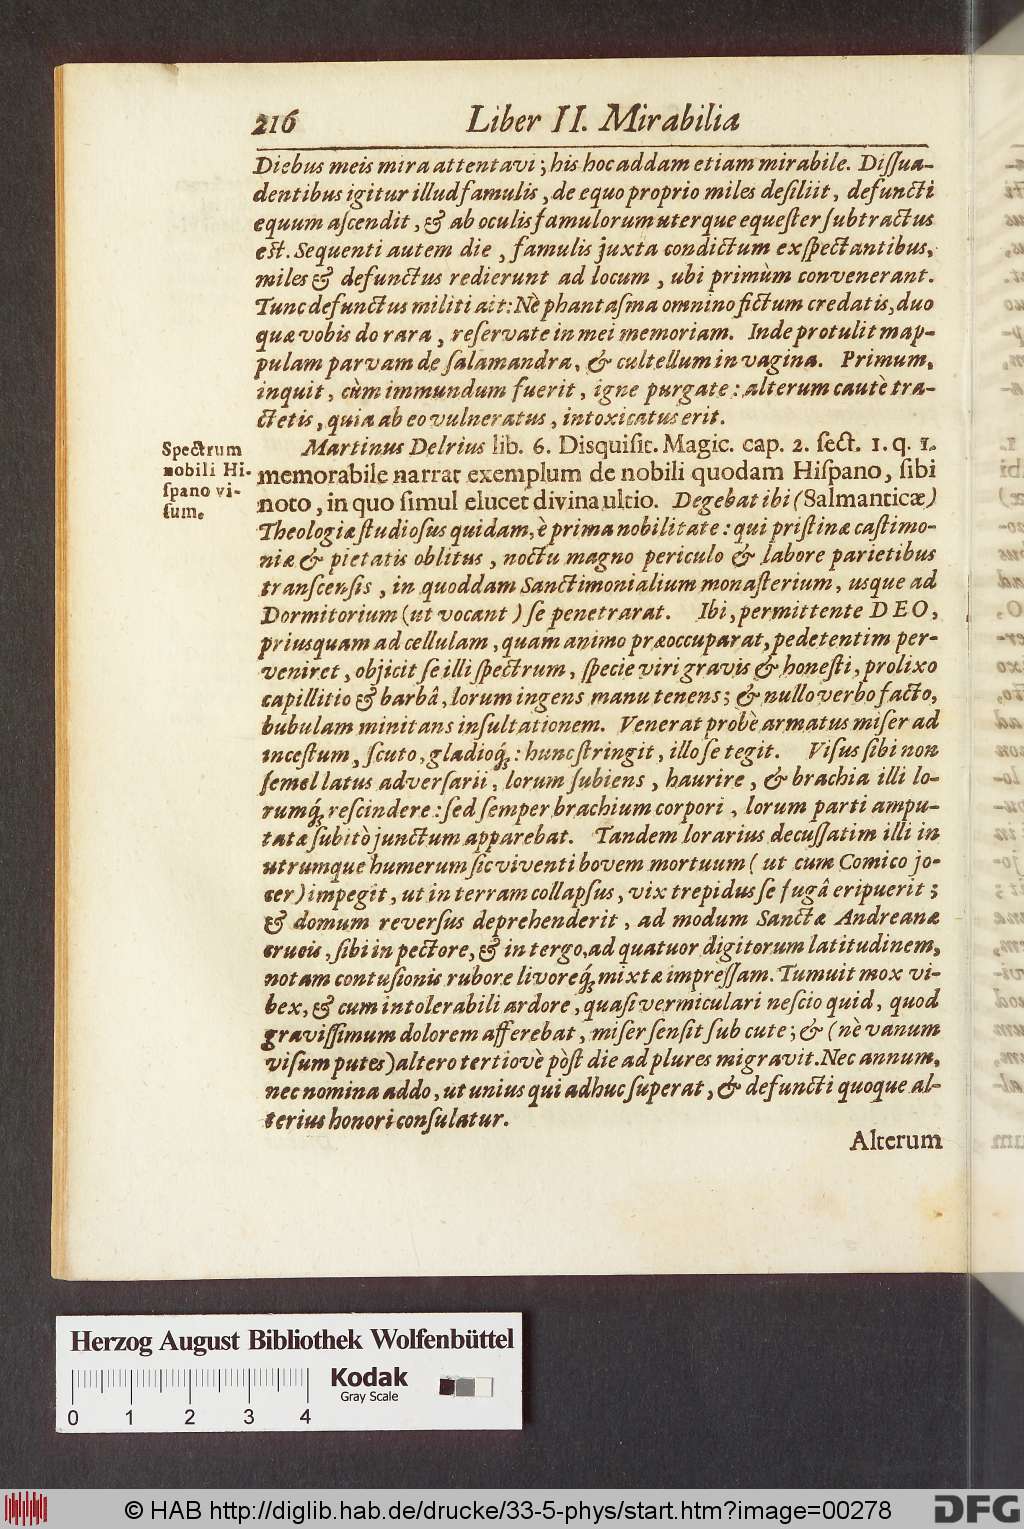 216 Liber II. Mirabilia
Diebus meis mira attentavi; his hoc addam etiam mirabile. Diſſua-
dentibus igitur illud famulis, de equo proprio miles deſiliit, defuncti
equum aſcendit, & ab oculis famulorum uterque equeſter ſubtractus
eſt. Sequenti autem die, famulis juxta condictum exſpectantibus,
miles & defunctus redierunt ad locum, ubi primùm convenerant.
Tunc defunctus militi ait: Nè phantaſma omnino fictum credatis, duo
quæ vobis do rara, reſervate in mei memoriam. Inde protulit map-
pulam parvam de ſalamandra, & cultellum in vagina. Primum,
inquit, cùm immundum fuerit, igne purgate: alterum cautè tra-
ctetis, quia ab eo vulneratus, intoxicatus erit.
Martinus Delrius lib. 6. Disquiſit. Magic. cap. 2. ſect. 1. q. 1.
Spectrum
nobili Hi-
ſpano vi-
ſum.
memorabile narrat exemplum de nobili quodam Hiſpano, ſibi
noto, in quo ſimul elucet divina ultio. Degebat ibi (Salmanticæ)
Theologiæ ſtudioſus quidam, è prima nobilitate: qui priſtinæ caſtimo-
niæ & pietatis oblitus, noctu magno periculo & labore parietibus
tranſcenſis, in quoddam Sanctimonialium monaſterium, usque ad
Dormitorium (ut vocant) ſe penetrarat. Ibi, permittente DEO,
priusquam ad cellulam, quam animo præoccuparat, pedetentim per-
veniret, objicit ſe illi ſpectrum, ſpecie viri gravis & honeſti, prolixo
capillitio & barbâ, lorum ingens manu tenens; & nullo verbo facto,
bubulam minitans inſultationem. Venerat probè armatus miſer ad
inceſtum, ſcuto, gladioq́;: hunc ſtringit, illo ſe tegit. Viſus ſibi non
ſemel latus adverſarii, lorum ſubiens, haurire, & brachia illi lo-
rumq́; reſcindere: ſed ſemper brachium corpori, lorum parti ampu-
tatæ ſubitò junctum apparebat. Tandem lorarius decuſſatim illi in
utrumque humerum ſic viventi bovem mortuum (ut cum Comico jo-
cer) impegit, ut in terram collapſus, vix trepidus ſe fugâ eripuerit;
& domum reverſus deprehenderit, ad modum Sanctæ Andreanæ
crucis, ſibi in pectore, & in tergo, ad quatuor digitorum latitudinem,
notam contuſionis rubore livoreq́; mixtæ impreſſam. Tumuit mox vi-
bex, & cum intolerabili ardore, quaſi vermiculari neſcio quid, quod
graviſſimum dolorem afferebat, miſer ſenſit ſub cute; & (nè vanum
viſum putes) altero tertiovè pòſt die ad plures migravit. Nec annum,
nec nomina addo, ut unius qui adhuc ſuperat, & defuncti quoque al-
terius honori conſulatur.
Alterum
Herzog August Bibliothek Wolfenbüttel
Kodak
Gray Scale
0 1 2 3 4
© HAB http://diglib.hab.de/drucke/33-5-phys/start.htm?image=00278
DFG